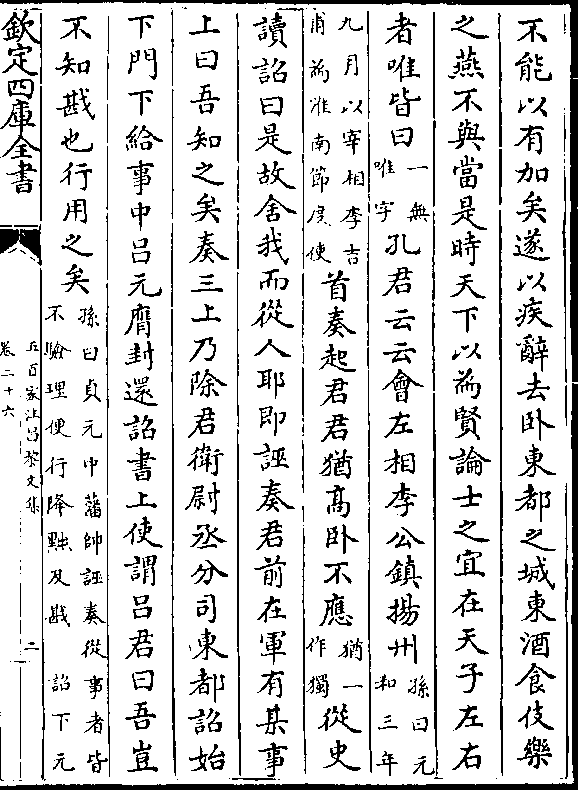 不能以有加矣遂以疾辭去卧東都之城東酒食伎樂
之燕不與當是時天下以為賢論士之宜在天子左右
者唯皆曰一無唯字孔君云云會左相李公鎮揚州孫曰元和三年
九月以宰相李吉甫為淮南節度使首奏起君君猶髙卧不應猶一作獨從史
讀詔曰是故舍我而從人耶即誣奏君前在軍有某事
上曰吾知之矣奏三上乃除君衛尉丞分司東都詔始
下門下給事中吕元膺封還詔書上使謂吕君曰吾豈
不知戡也行用之矣孫曰貞元中藩帥誣奏從事者皆不驗理便行降黜及戡詔下元
欽定四庫全書
五百家注昌黎文集
卷二十六
二